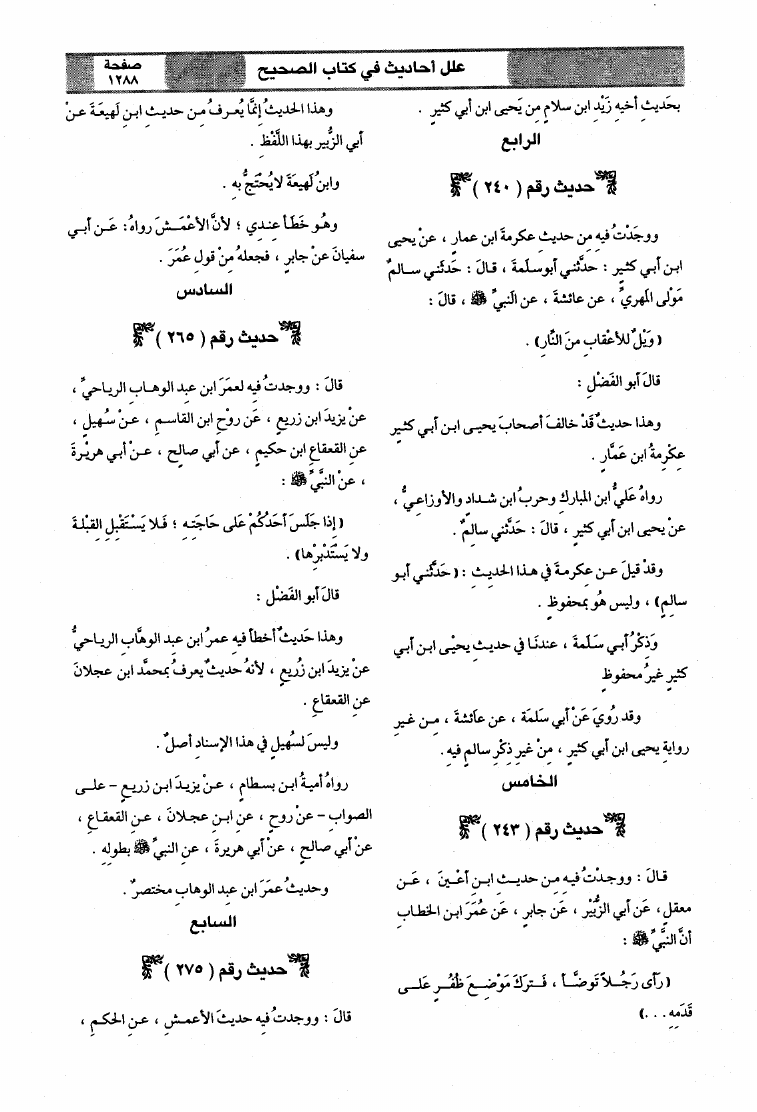 علل أحاديث في كتاب الصحيح
صفحة
١٢٨٨
بحَديثِ أخيه زَيْد ابن سلامٍ من يَحيى ابن أبي كثيرٍ .
الرابع
حديث رقم ( ٢٤٠ )
ووجَدْتُ فيه من حديثِ عكرمةَ ابن عمارٍ ، عنْ يحيى
ابن أبي كثيرٍ : حدَّثني أبوسلَمةَ ، قالَ : حَدثني سالمٌ
مَوْلى المَهريِّ ، عن عائشةَ ، عن النبيِّ ﷺ ، قالَ :
(وَيْلٌ للأعْقابِ منَ النَّارِ) .
قالَ أبو الفَضْلِ :
وهذا حديثٌ قدْ خالفَ أصحابَ يحيى ابن أبي كثيرٍ
عِكْرِمةُ ابن عمَّارٍ .
رواهُ عليُّ ابن المباركِ وحربُ ابن شدادٍ والأوزاعيُّ ،
عنْ يحيى ابن أبي كثيرٍ ، قالَ : حَدَّثني سالمٌ .
وقدْ قيلَ عن عكرمةَ في هذا الحديثِ : (حَدَّثني أبو
سالمٍ) ، وليس هُو بمحفوظٍ .
وَذِكْرُ أبي سَلَمةَ ، عندنَا في حديثِ يحيْى ابن أبي
كثيرٍ غيرُ محفوظٍ
وقد رُويَ عَنْ أبي سَلَمَة ، عن عائشةَ ، من غيرِ
روايةِ يحيى ابن أبي كثيرٍ ، منْ غيرِ ذكْرِ سالمٍ فيه .
الخامس
حديث رقم ( ٢٤٣ )
قالَ : ووجَدْتُ فيه من حديثِ ابن أعْينَ ، عَن
معقلٍ ، عَن أبي الزُّبَيْرِ ، عَن جابرٍ ، عَن عُمَرَ ابن الخطابِ
أنَّ النبيَّ ﷺ :
(رَأى رَجُلاً تَوضَّأ ، فَتركَ مَوْضِعَ ظُفُرٍ عَلى
قَدَمهِ . . .)
وهذا الحديثُ إنمَّا يُعرفُ من حديثِ ابنِ لهيعَةَ عنْ
أبي الزُّبيرِ بهذا اللَّفْظِ .
وابنُ لهيعَةَ لايُحْتَجُّ به .
وهُو خَطأ عندي ؛ لأنَّ الأعْمَشَ رواهُ : عَن أبي
سفيانَ عنْ جابرٍ ، فجعلهُ منْ قولِ عُمَرَ .
السادس
حديث رقم ( ٢٦٥ )
قالَ : ووجدتُ فيه لعمَرَ ابن عبد الوهابِ الرياحيِّ ،
عنْ يزيدَ ابن زريعٍ ، عَن روْحِ ابن القاسمِ ، عَنْ سُهيلٍ ،
عنِ القعقاعِ ابن حكيمٍ ، عن أبي صالحٍ ، عنْ أبي هريرةَ
، عنْ النبيِّ ﷺ :
(إذا جلَسَ أحَدُكُمْ عَلى حَاجتِهِ ؛ فَلا يَسْتَقْبِلِ القِبْلةَ
ولا يَسْتَدْبِرْها) .
قالَ أبو الفَضْلِ :
وهذا حَديثٌ أخطأ فيه عمرُ ابن عبد الوهَّابِ الرياحيُّ
عنْ يزيدَ ابن زُريعٍ ، لأنهُ حديثٌ يعرفُ بمحمَّد ابن عجلانَ
عنِ القعقاعِ .
وليسَ لسُهيلٍ في هذا الإسنادِ أصلٌ .
رواهُ أميةُ ابن بسطامٍ ، عنْ يزيدَ ابن زريعٍ – على
الصوابِ – عنْ روحٍ ، عنِ ابن عجلانَ ، عنِ القعقاعِ ،
عنْ أبي صالحٍ ، عنْ أبي هريرةَ ، عنِ النبيِّ ﷺ بطولهِ .
وحديثُ عمَرَ ابن عبد الوهابِ مختصرٌ .
السابع
حديث رقم ( ٢٧٥ )
قالَ : ووجدتُ فيه حديثَ الأعمشِ ، عنِ الحكمِ ،